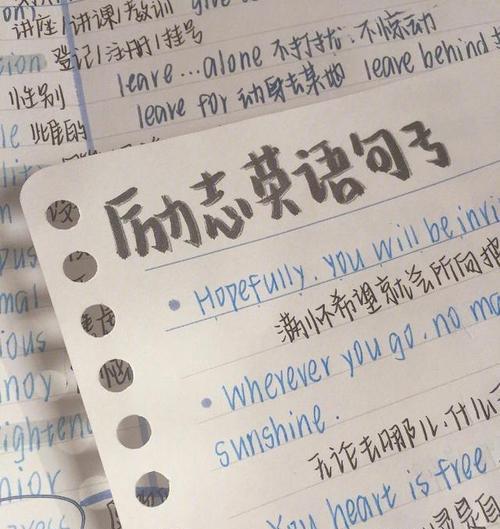 讲座/讲课/教训 give
sion 登记/注册/挂号
leave...alone 不打扰.不惊动
性别
leave for 动身去某地 leave behind
雄的
励志英语句子
Hopefully. you will be invi
满怀希望就会所向披
mal
ious
Wherever you go. no ma
sunshine.
无论去哪儿.什么
nior
You heart is free